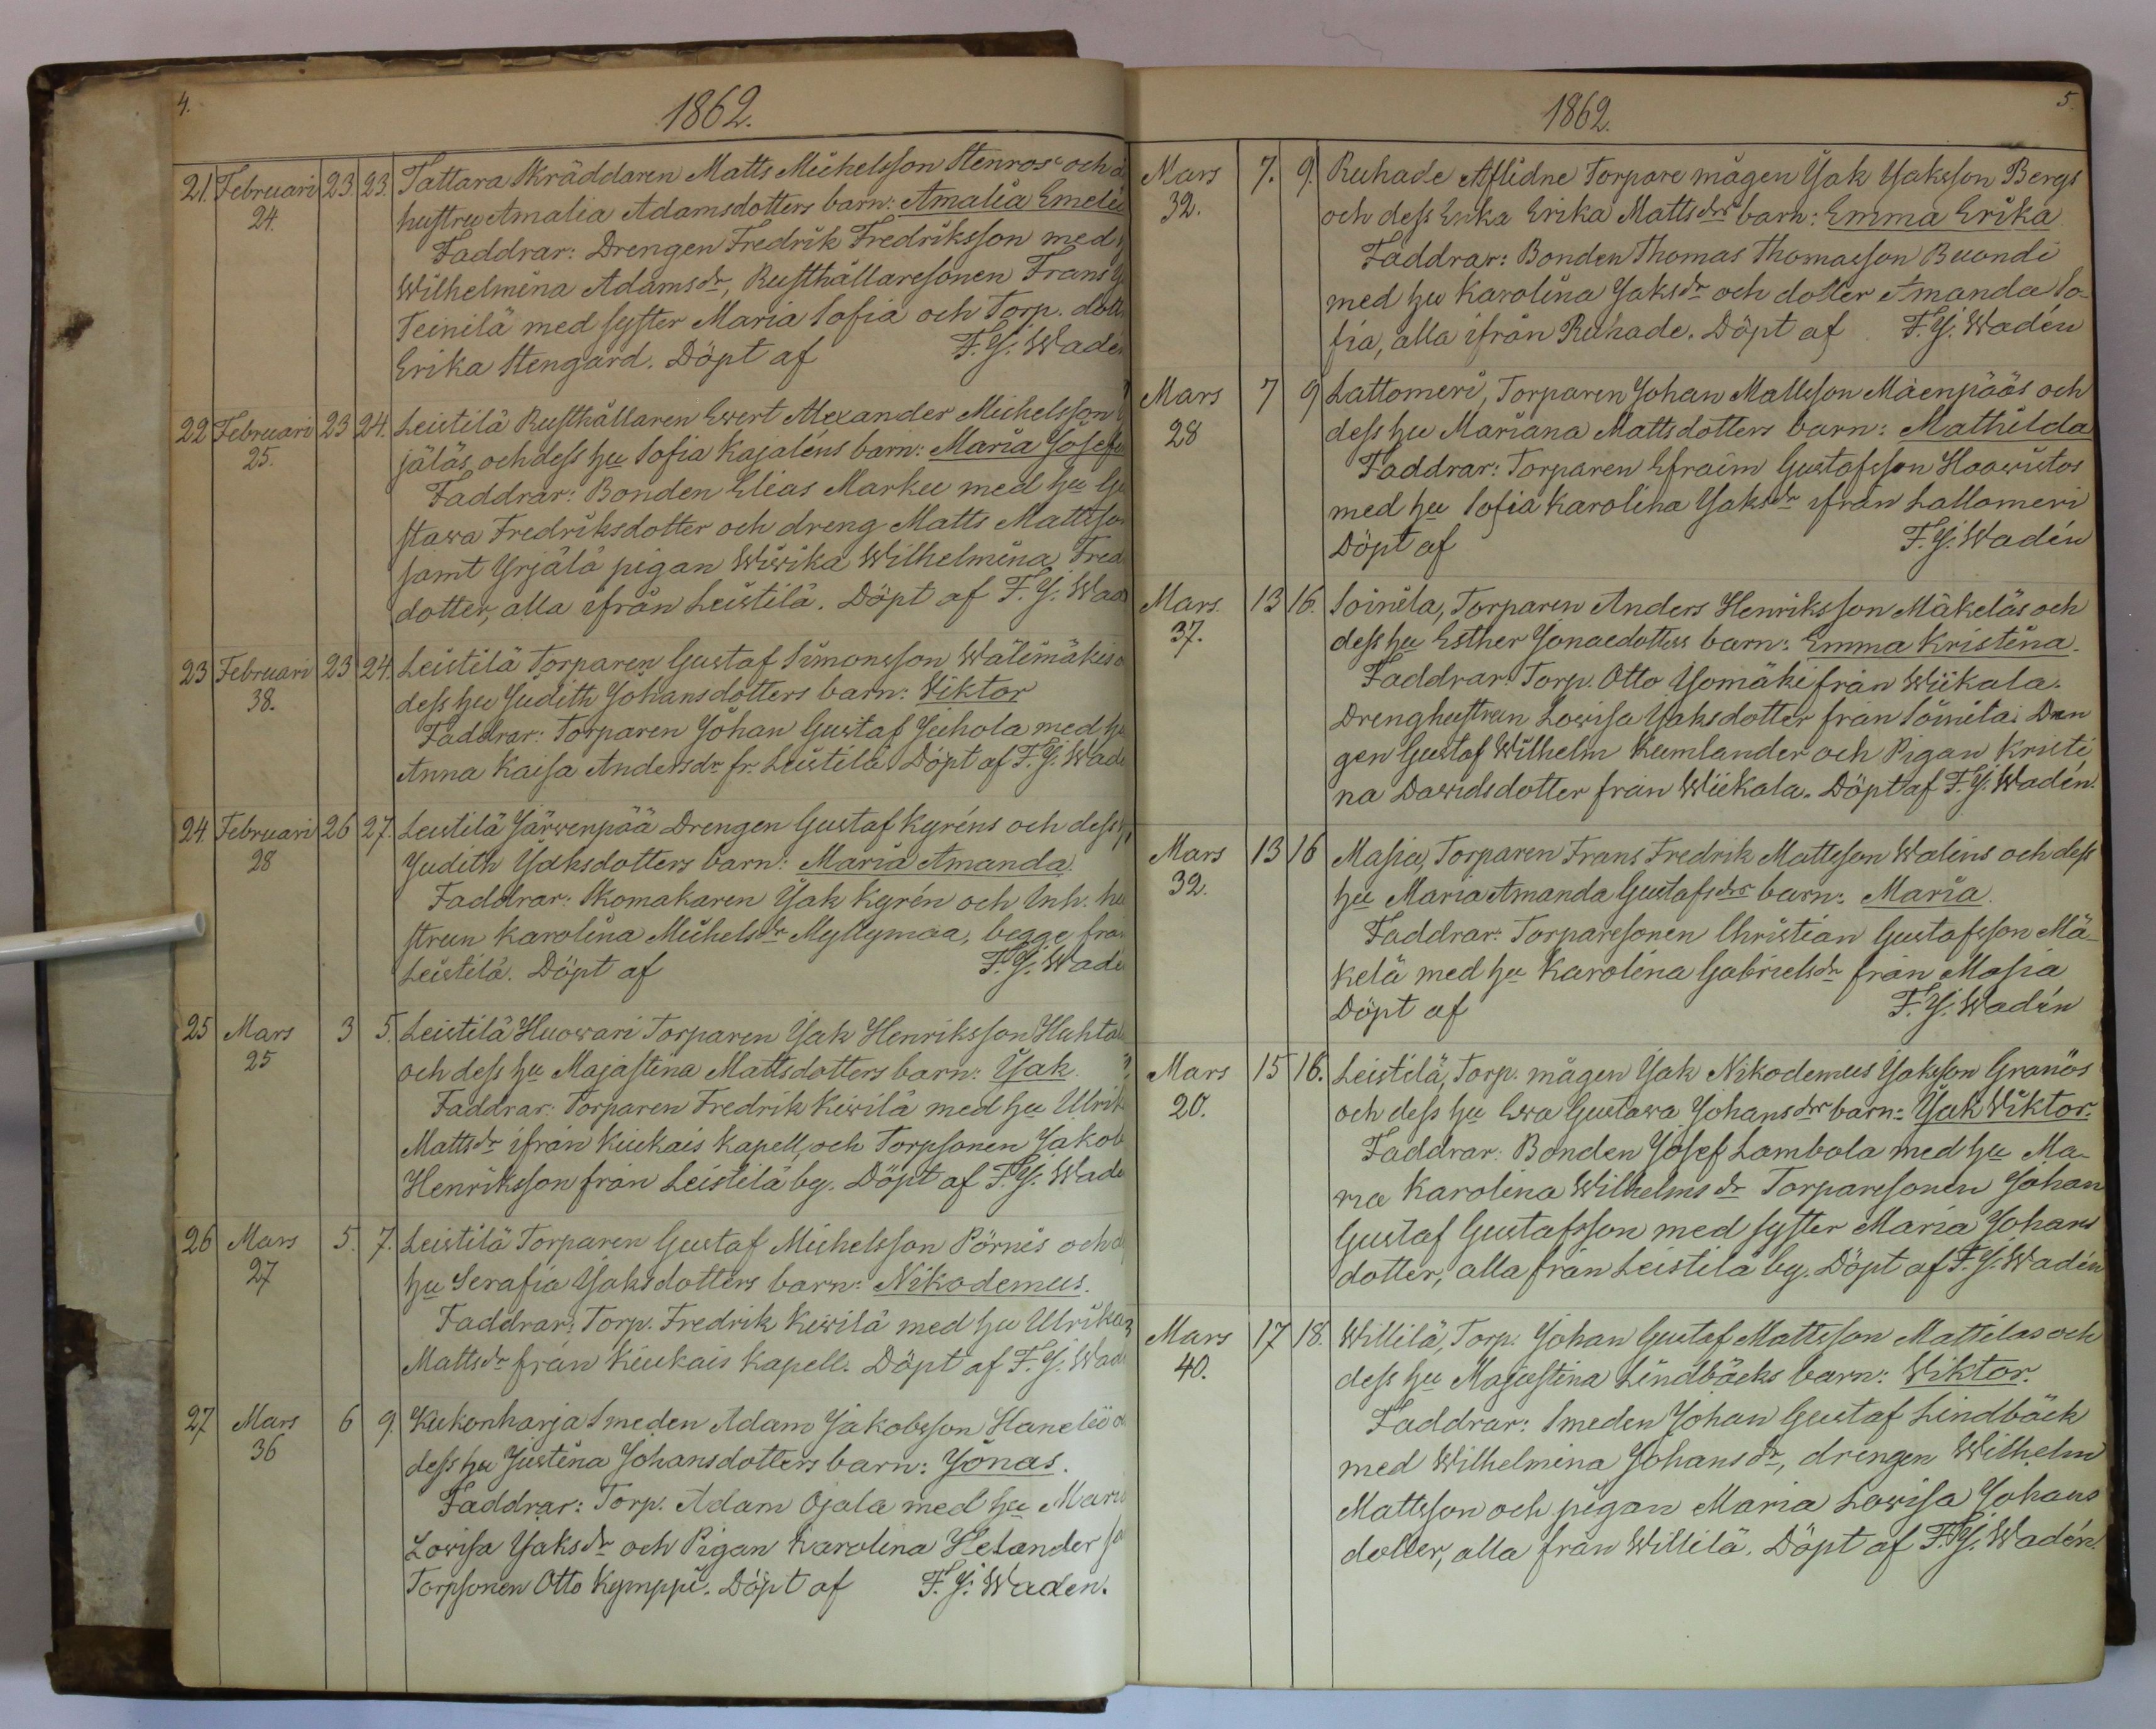 4.
1862.
21. Februari 23 23. Tattara Skräddaren Matts Michelsson Stenros och
24. hustru Amalia Adamsdotters barn: Amalia
Faddrar: Drengen Fredrik Fredriksson med
Wilhelmina Adamsdr, Rusthållaresonen Frans
Teinilä med syster Maria Sofia och Torp.
Erika Stengård. Döpt af F. J. Wadén
22 Februari 23 24. Leistilä Rusthållaren Ewert Alexander Michelsson
25. jäläs och dess hu Sofia Kajaléns barn: Maria
Faddrar: Bonden Elias Marku med hu Gu
stawa Fredriksdotter och dreng Matts Mattsson
samt Yrjälä pigan Wiwika Wilhelmina Fred
dotter, alla ifrån Leistilä. Döpt af F. J. Wad
23 Februari 23 24. Leistilä Torparen Gustaf Simonsson Wälimäkis
38. dess hu Judith Johansdotters barn: Wiktor
Faddrar: Torparen Johan Gustaf Juhola med hu
Anna Kaisa Andersdr fr. Leistilä Döpt af F. J. Wade
24. Februari 26 27. Leistilä Järwenpää Drengen Gustaf Kyréns och dess
28 Judith Jaksdotters barn: Maria Amanda.
Faddrar: Skomakaren Jak Kyrén och Inh. hu
strun Karolina Michelsdr Myllymaa, begge från
Leistilä. Döpt af F. J. Wade
25 Mars 3 5. Leistilä Huowari Torparen Jak Henriksson
25 och dess hu Majastina Mattsdotters barn: Jak.
Faddrar: Torparen Fredrik Kiwilä med hu Ulrik
Mattsdr ifrån Kiukais Kapell, och Torpsonen Jakob
Henriksson från Leistilä by. Döpt af F. J. Wade
26 Mars 5. 7. Leistilä Torparen Gustaf Michelsson Pörnis och
27 hu Serafia Jaksdotters barn: Nikodemus.
Faddrar: Torp. Fredrik Kiwilä med hu Ulrika
Mattsdr från Kiukais Kapell. Döpt af F. J. Wad
27 Mars 6 9. Kukonharja Smeden Adam Jakobsson
36 dess hu Justina Johansdotters barn: Jonas.
Faddrar: Torp. Adam Ojala med hu Mari
Lovisa Jaksdr och Pigan Karolina Helander
Torpsonen Otto Kymppi. Döpt af F. J. Wadén.
5.
1862.
Mars 7. 9. Ruhade Aflidne Torpare mågen Jak Jaksson Bergs
32. och dess Enka Erika Mattsdrs barn: Emma Erika
Faddrar: Bonden Thomas Thomasson Buondi
med hu Karolina Jaksdr och dotter Amanda So-
fia, alla ifrån Ruhade. Döpt af F. J. Wadén
Mars 7 9 Lattomeri, Torparen Johan Mattsson Mäenpääs och
28 dess hu Mariana Mattsdotters barn: Mathilda
Faddrar: Torparen Efraim Gustafsson Haawistos
med hu Sofia Karolina Jaksdr ifrån Lattomeri
Döpt af F. J. Wadén
Mars. 13 16. Soinila, Torparen Anders Henriksson Mäkeläs och
37. dess hu Esther Jonaedotters barn: Emma Kristina.
Faddrar: Torp. Otto Isomäki från Wiikala.
Drenghustrun Lowisa Jaksdotter från Soinila: Dren
gen Gustaf Wilhelm Kumlander och Pigan Kristi
na Dawidsdotter från Wiikala. Döpt af F. J. Wadén.
Mars 13 16 Masia, Torparen Frans Fredrik Mattsson Walins och dess
32. hu Maria Amanda Gustafsdrs barn: Maria.
Faddrar: Torparesonen Christian Gustafsson Mä-
kelä med hu Karolina Gabrielsdr från Masia
Döpt af F. J. Wadén
Mars 15 16. Leistilä, Torp. mågen Jak Nikodemus Jaksson Granös
20. och dess hu Ewa Gustawa Johansdrs barn: Jak Wiktor.
Faddrar: Bonden Josef Lambola med hu Ma-
ria Karolina Wilhelmsdr Torparesonen Johan
Gustaf Gustafsson med syster Maria Johans
dotter, alla från Leistilä by. Döpt af F. J. Wadén
Mars 17 18. Willilä, Torp. Johan Gustaf Mattsson Mattilas och
40. dess hu Majastina Lindbäcks barn: Wiktor.
Faddrar: Smeden Johan Gustaf Lindbäck
med Wilhelmina Johansdr, drengen Wilhelm
Mattsson och pigan Maria Lowisa Johans
dotter, alla från Willilä. Döpt af F. J. Wadén.